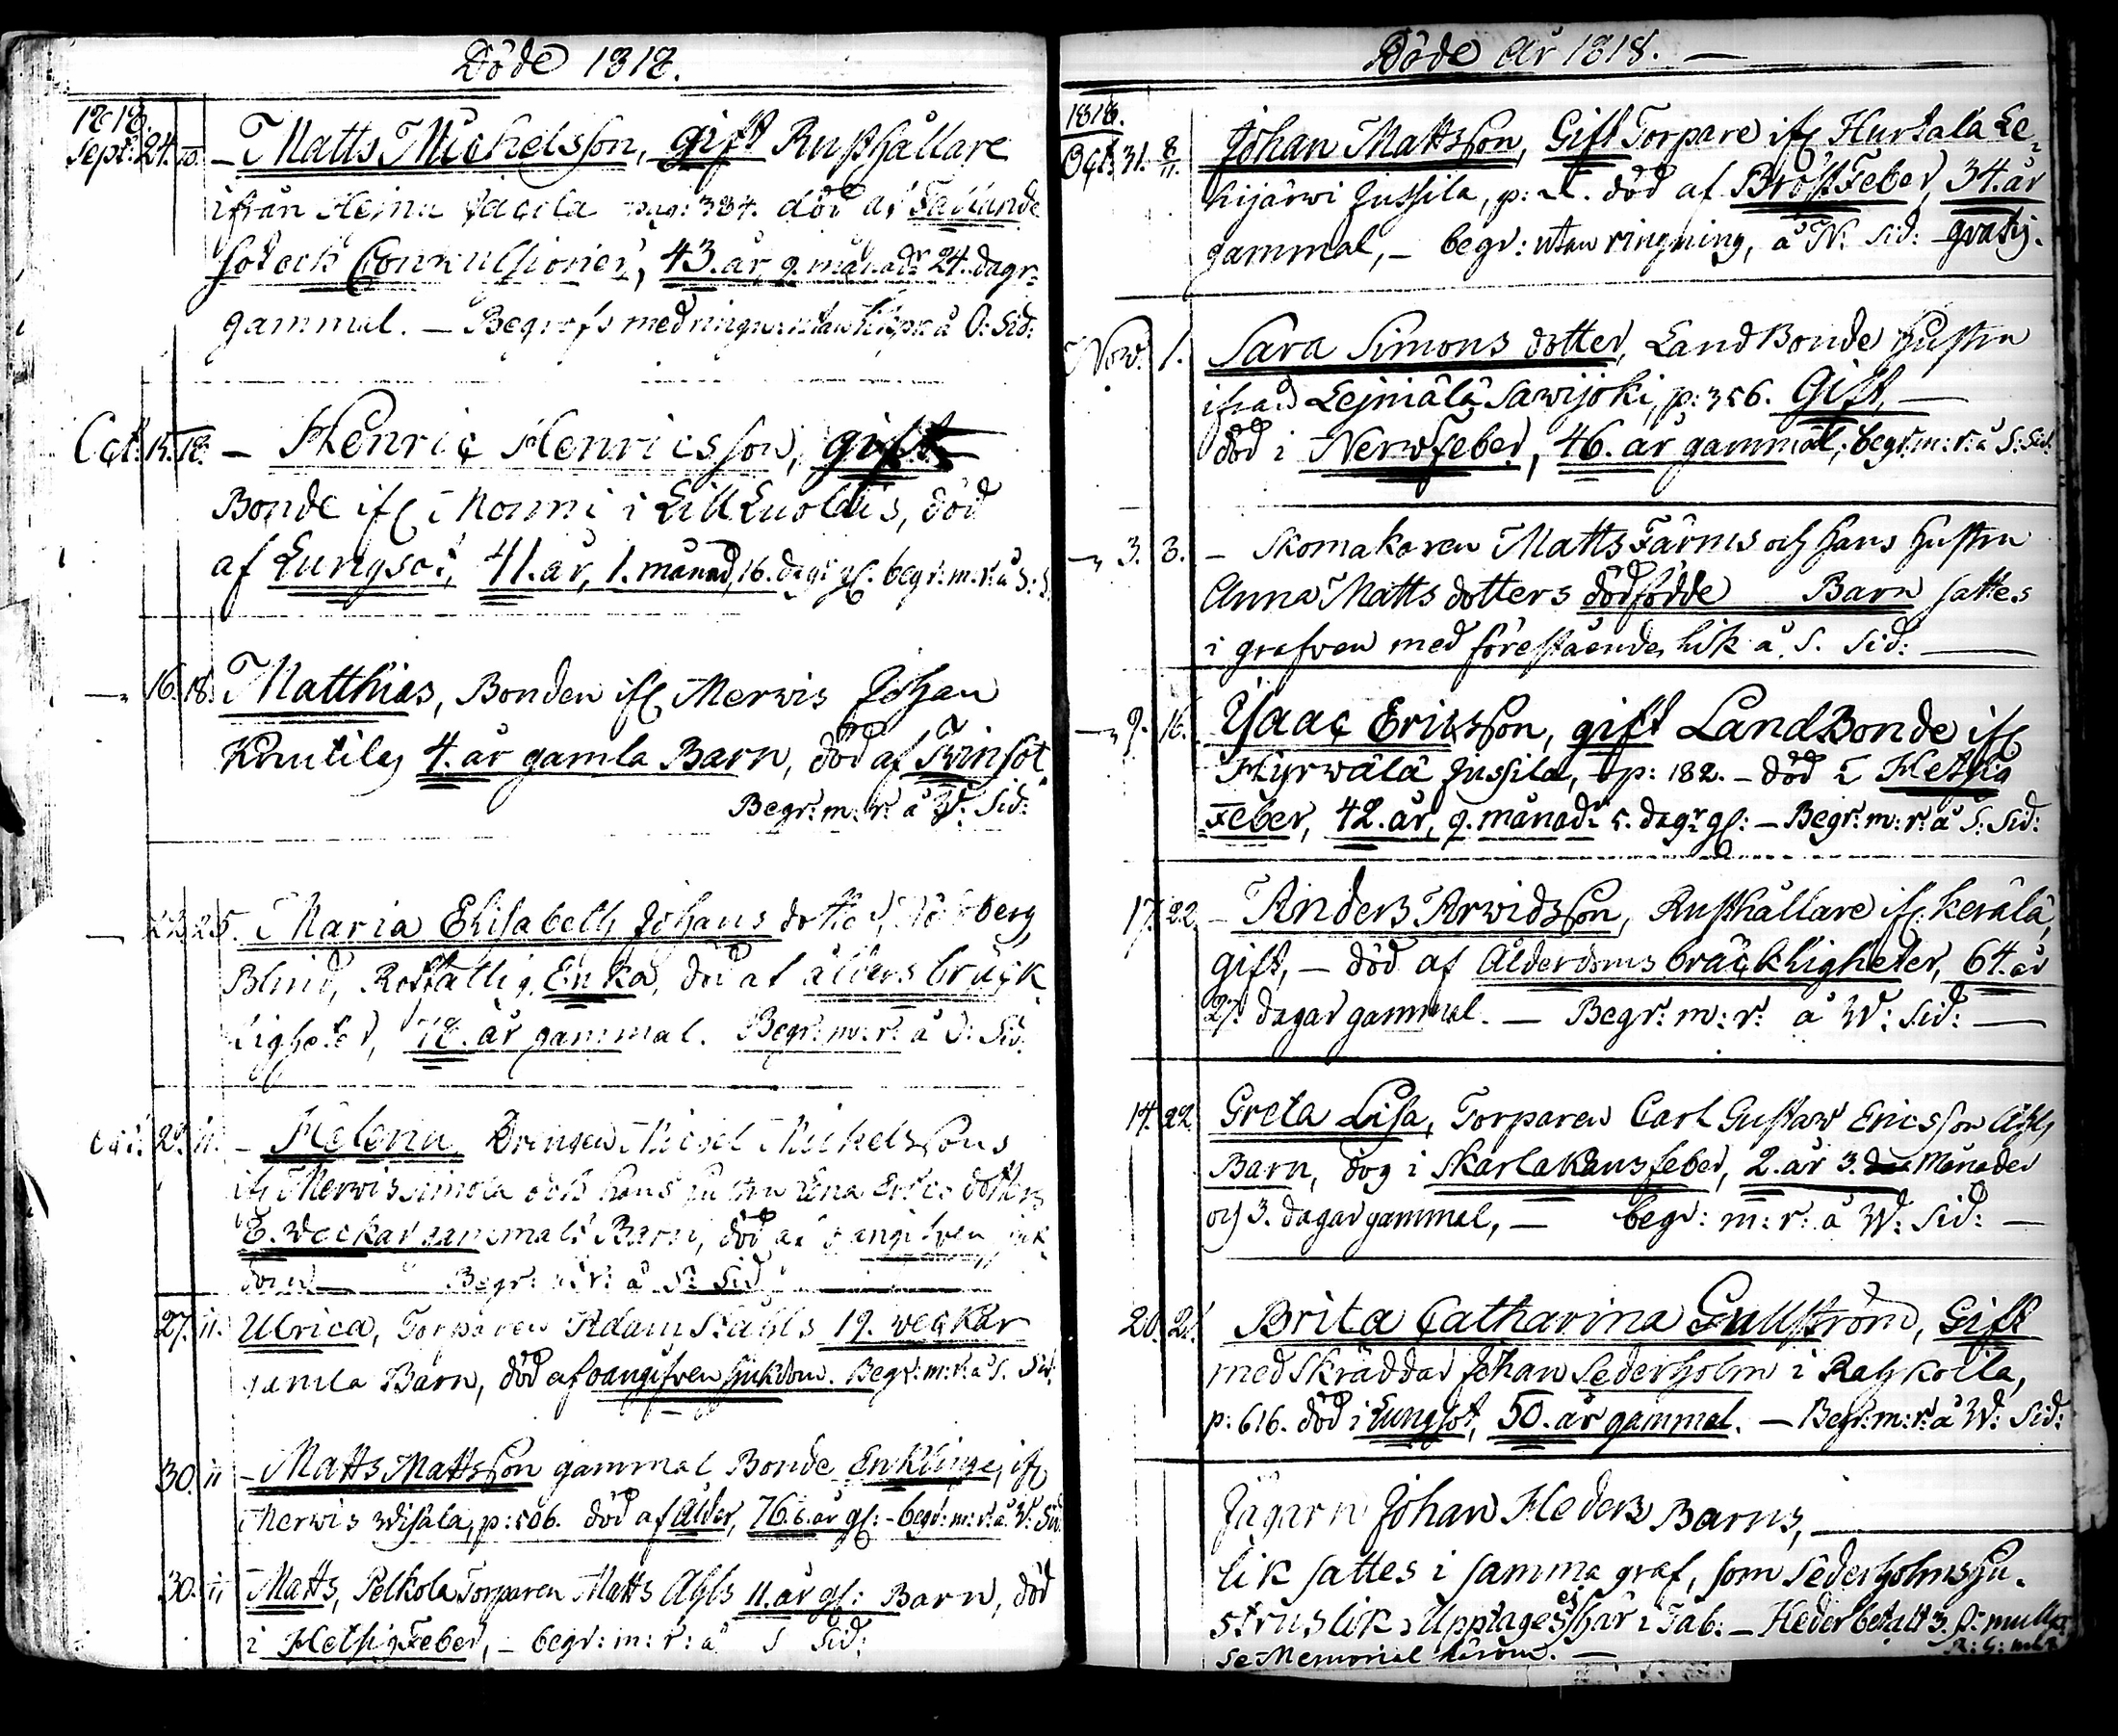 Döde 1818.
1818.
Sept: 24. 10. – Matts Michelsson, gift Rusthållare
ifrån Heinu pag: 384. död af Fallande
sot och Convulsioner, 43. år, 9. månadr 24. dagr
gammal. – Begrofs med ringn: utan å O: Sid:
Oct: 15. 18. – Henric Henricsson, gift
Bonde ifr Nonni i Lill Luoldis, död
af Lungsot, 41. år, 1. månad, 16. dagr gl. begr: m: r: å S: S.
— 16. 18. Matthias, Bonden ifr Merwis Johan
Knutilas 4. år gamla Barn, död af Twinsot
Begr: m: r: å W: Sid:
— 23. 25. Maria Elisabeth Johans dotter berg,
Blind, Rotfattig Enka, död af ålders bräck
ligheter, 78. år gammal. Begr: m: r: å O: Sid:
Oct: 29. 11. – Helena, Drengen Michel Mickelssons
ifr Merwis Simola och hans hustru Lena Erics dotters
8. weckar gammalt Barn, död af oangifven sjuk
dom — Begr: m: r: å S: Sid
27. 11. Ulrica, Torparen Adam Ståhls 19. weckar
gamla Barn, död af oangifven sjukdom. Begr: m: r: å S. Sid:
30. 11 – Matts Mattsson gammal Bonde Enklinge, ifr
Merwis Wisala, p: 506. död af Ålder, 76. år gl: – begr: m: r: å W: Sid.
30. 11 Matts, Pelkola Torparen Matts Ahls 11. år gl: Barn, död
i Hetsig Feber, – begr: m: r: å S Sid:
Döde År 1818. —
1818.
Oct: 31. 8/11. Johan Mattsson, Gift Torpare ifr Hurkala Le-
hijärwi Jussila, p: död af Bröst Feber, 34. år
gammal, – begr: utan ringning, å N: Sid: gratis.
Nov: 1. Sara Simons dotter, Land Bonde hustru
ifrån Lejniälä Sawijoki, p: 356. Gift, —
död i Nerwfeber, 46. år gammal, begr: m: r: å S: Sid.
— 3. 3. – Skomakaren Matts Färms och hans hustru
Anna Matts dotters dödfödde Barn sattes
i grafven med förestående lik å S. Sid: —
— 9. 16. Isaac Ericsson, gift LandBonde ifr
Hyrwälä Jussila, p: 182. – död i Hetsig
Feber, 42. år, 9. månadr 5. dagr gl: – Begr: m: r: å S: Sid:
17. 22. – Anders Arwidsson, Rusthållare ifr. Kerälä,
gift, – död af Ålderdoms bräckligheter, 64. år
27. dagar gammal. — Begr: m: r: å W: Sid: —
14. 22. Greta Lisa, Torparen Carl Gustaw Ericsson Ahls
Barn, dog i Skarlakans feber, 2. år 3. Månader
och 3. dagar gammal, — begr: m: r: å W: Sid: —
20. 21. Brita Catharina Gullström, Gift
med Skräddar Johan Sederholm i Rahkoila,
p: 616. död i Lungsot, 50. år gammal. – Begr: m: r: å W: Sid:
Jägarn Johan Heders Barns, —
lik sattes i samma graf, som Sederholms hu-
strus lik, Upptages ej här i Tab: – Heder betalt 3
se Memorial härom. —